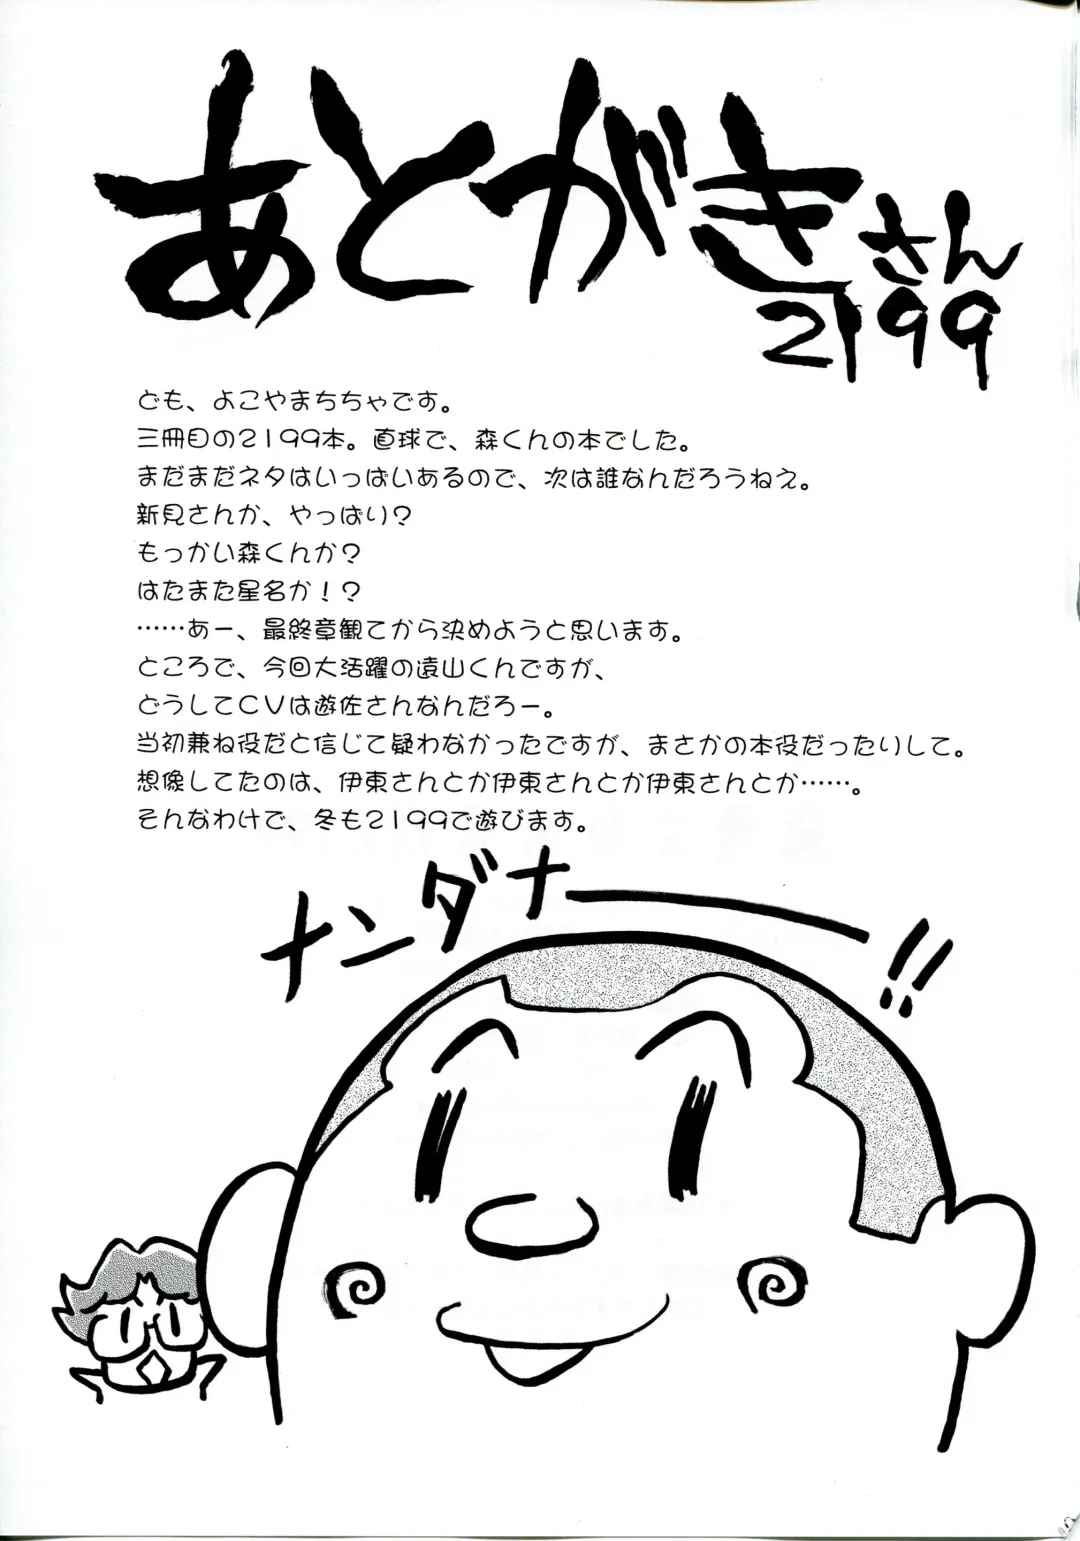 あとがきさん
2199
ども、よこやまちちゃです。
三冊目の2199本。直球で、森くんの本でした。
まだまだネタはいっぱいあるので、次は誰なんだろうねえ。
新見さんか、やっぱり？
もっかい森くんか？
はたまた星名か！？
……あー、最終章観てから決めようと思います。
ところで、今回大活躍の遠山くんですが、
どうしてＣＶは遊佐さんなんだろー。
当初兼ね役だと信じて疑わなかったですが、まさかの本役だったりして。
想像してたのは、伊東さんとか伊東さんとか伊東さんとか……。
そんなわけで、冬も2199で遊びます。
ナンダナー!!